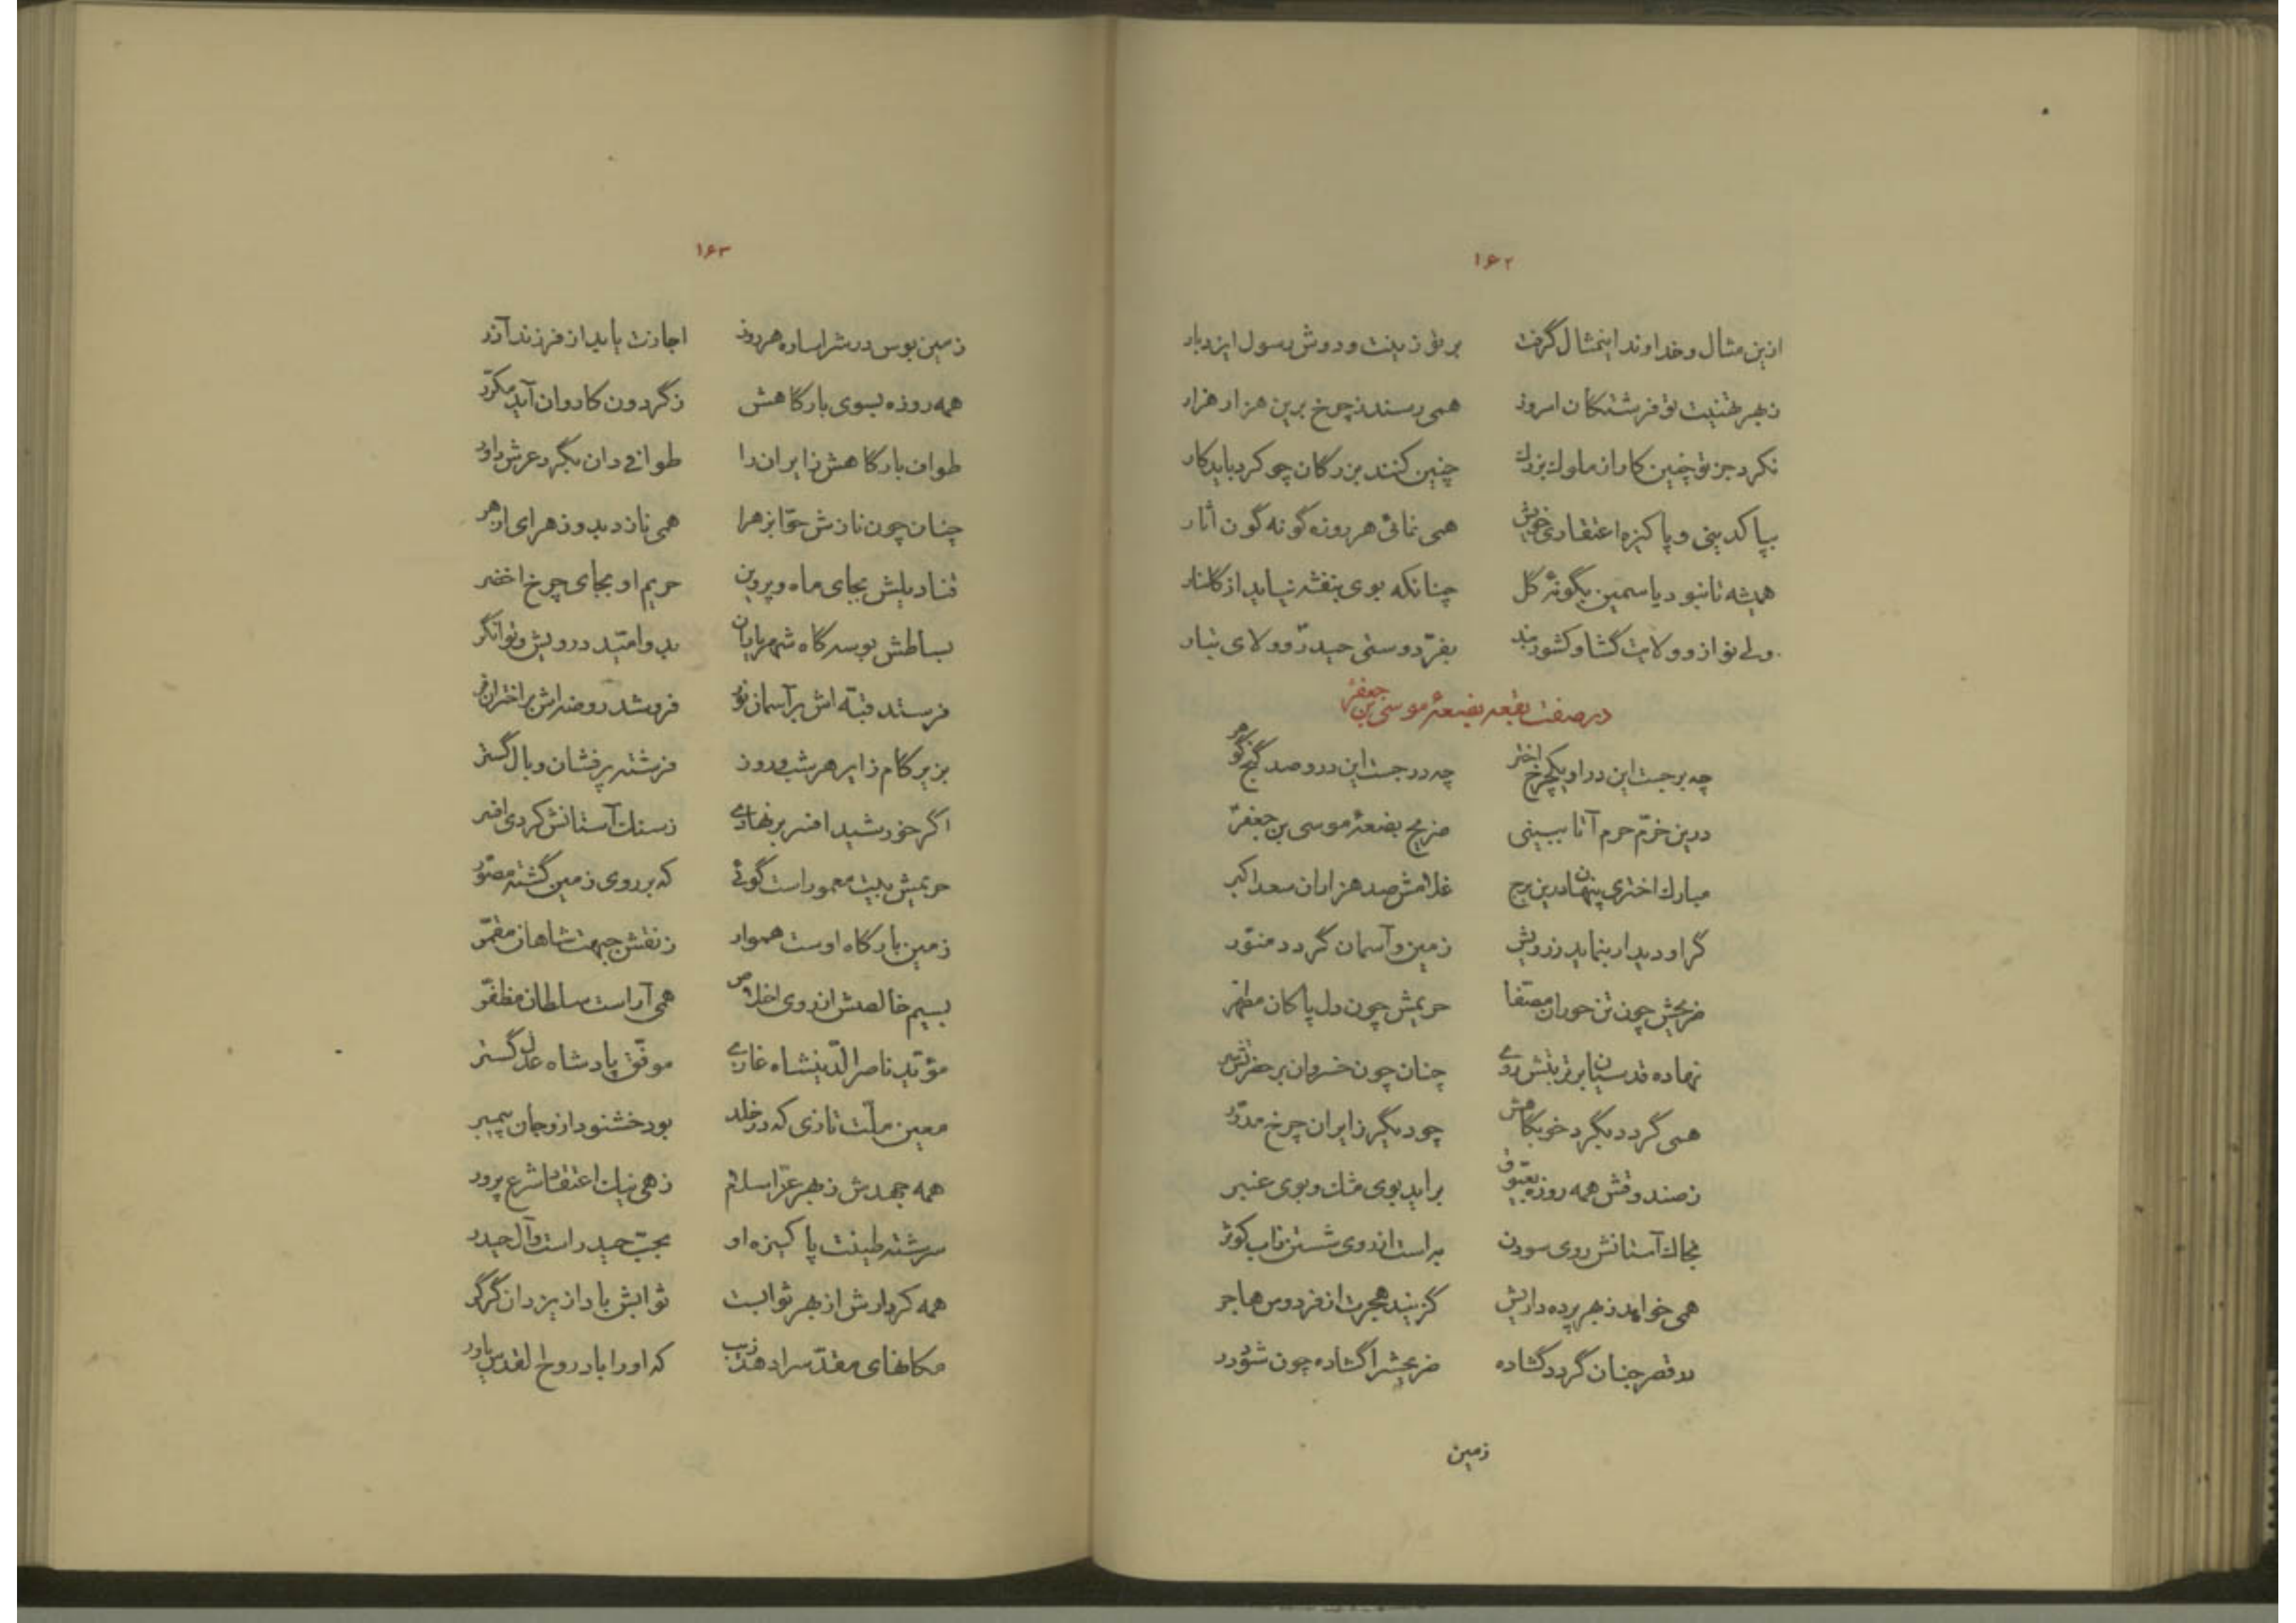 ۱۶۲
ازین مثال و خداوند اینمثال گرفت بر تو زینت و دوش رسول ایزد بار
ز بهر تهنیت تو فرشتگان امروز همی رسند ز چرخ برین هزار هزار
نکرد جز تو چنین کار از ملوک بزرك چنین کنند بزرگان چو کرد باید کار
بپاکدینی و پاکیزه اعتقادی خویش همی نمائی هر روزه گونه گون اثار
همیشه تا نبود یاسمین بگونهٔ گل چنانکه بوی بنفشه نیاید از گلنار
ولی نواز و ولایت گشا و کشور بند بفرّ دوستی حیدر و ولای تبار
در صفت بقعه بضعهٔ موسی بن جعفر
چه برجست این درو یکچرخ اختر چه درجست این درو صد گنج گوهر
درین خرّم حرم آ تا ببینی ضریح بضعهٔ موسی بن جعفر
مبارك اختری پنهان درین برج غلامش صد هزاران سعد اکبر
گر او دیدار بنماید ز رویش زمین و آسمان گردد منوّر
ضریحش چون تن حوران مصفّا حریمش چون دل پاکان مطهّر
نهاده قدسیان بر تربتش روی چنان چون خسروان بر حضرتش سر
همی گردد بگرد خوابگاهش چو دیگر زایران چرخ مدوّر
ز صندوقش همه روزه بعیّوق براید بوی مشك و بوی عنبر
بخاك آستانش روی سودن به است از روی شستن بآب کوثر
همی خواهد ز بهر پرده داریش گزیند هجرت از فردوس هاجر
در قصر جنان گردد گشاده ضریحشرا گشاده چون شود در
زمین
۱۶۳
زمین بوس درشرا ساره هر روز اجازت یابد از فرزند آذر
همه روزه بسوی بارگاهش ز گردون کاروان آید مکرّر
طواف بارگاهش زایرانرا طوافی دان بگرد عرش داور
چنان چون نازش حوّا بزهرا همی نازد بدو زهرای ازهر
قنادیلش بجای ماه و پروین حریم او بجای چرخ اخضر
بساطش بوسه گاه شهریاران بدو امّید درویش و توانگر
فرستد قبّه اش بر آسمان نور فروشد روضه اش بر اختران فر
بزیر گام زایر هر شب و روز فرشته پر فشان و بال گستر
اگر خورشید افسر بر نهادی ز سنك آستانش کردی افسر
حریمش بیت معمور است گوئی که بر روی زمین گشته مصوّر
زمین بارگاه اوست هموار ز نقش جبهت شاهان مقمّر
بسیم خالصش از روی اخلاص همی آراست سلطان مظفّر
مؤیّد ناصر الدّین شاه غازی موفّق پادشاه عدل گستر
معین ملّت تازی که در خلد بود خشنود ازو جان پیمبر
همه جهدش ز بهر عزّ اسلام زهی نیك اعتقاد شرع پرور
سرشته طینت پاکیزه او بحبّ حیدر است و آل حیدر
همه کردارش از بهر ثوابست ثوابش باد از یزدان گرگر
مکانهای مقدّس را دهد زیب که او را باد روح القدس یاور